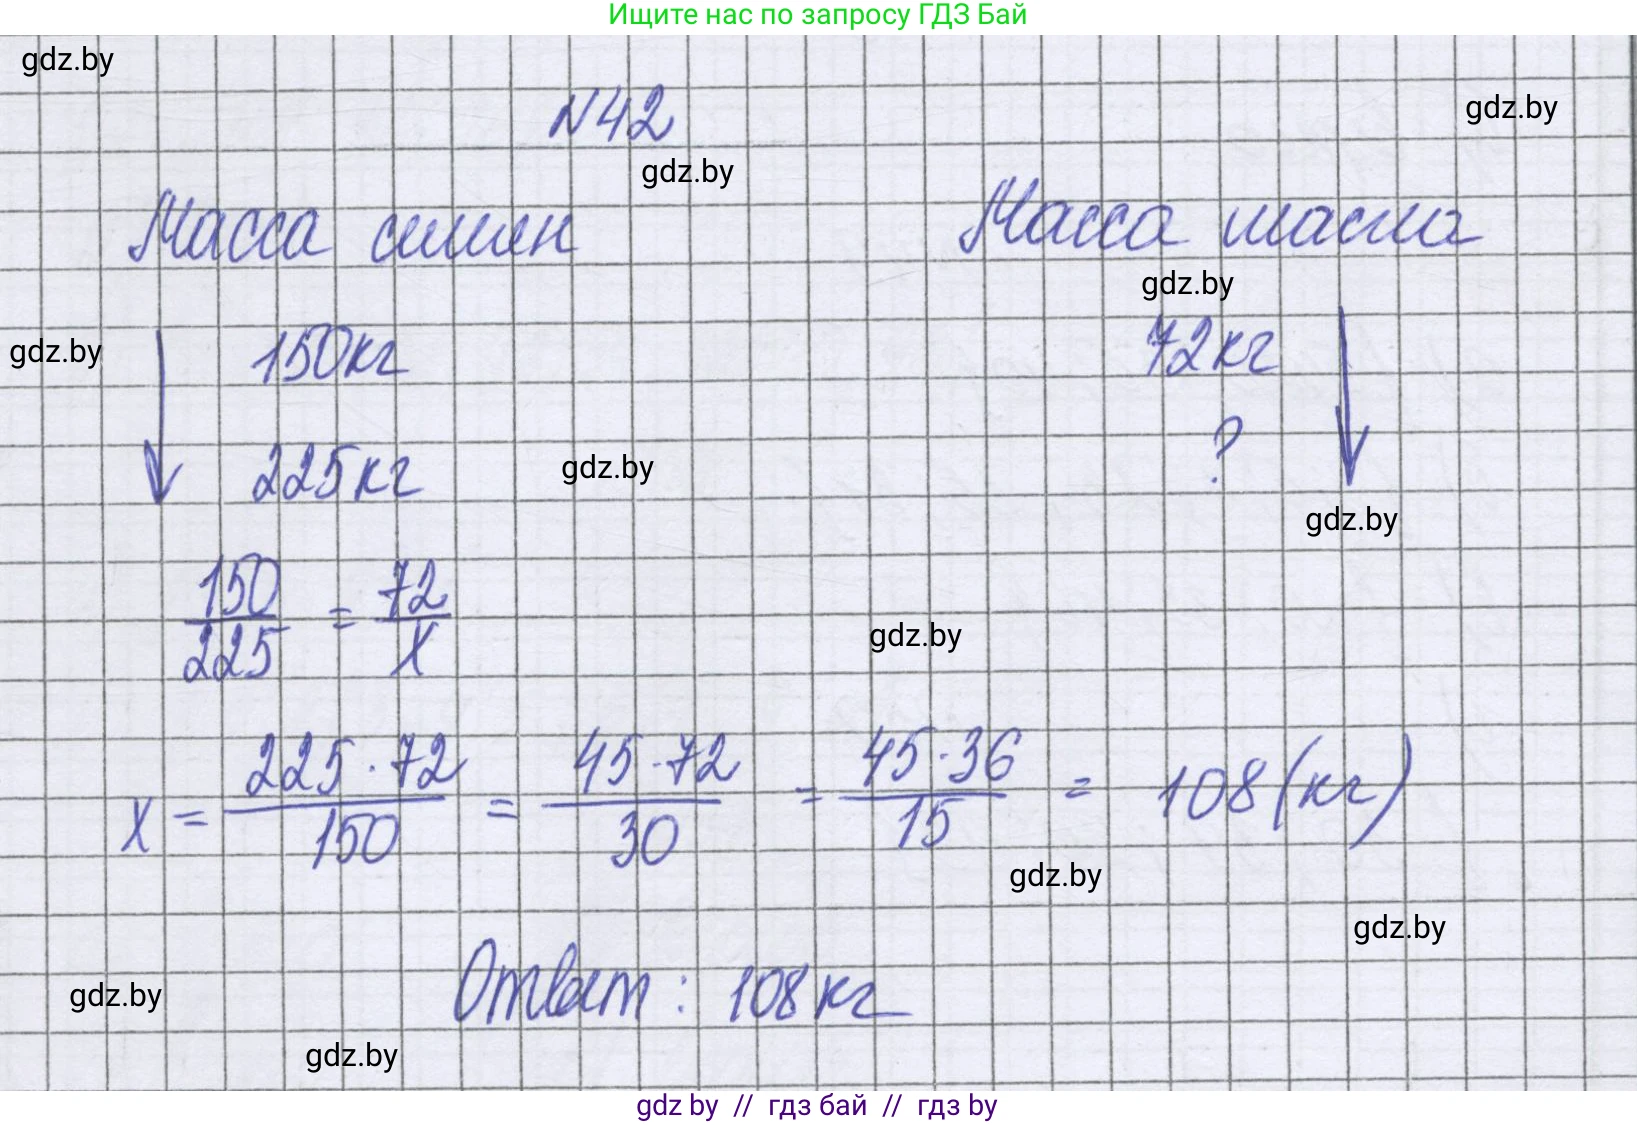 Ищите нас по запросу ГДЗ Бай
gdz.by
gdz.by
N42
gdz.by
Масса семян Масса масла
gdz.by
gdz.by
150кг 72кг
?
225кг
gdz.by
gdz.by
150/225 = 72/x
gdz.by
x = 225·72/150 = 45·72/30 = 45·36/15 = 108(кг)
gdz.by
gdz.by
Ответ: 108кг
gdz.by
gdz.by
gdz by // гдз бай // гдз by